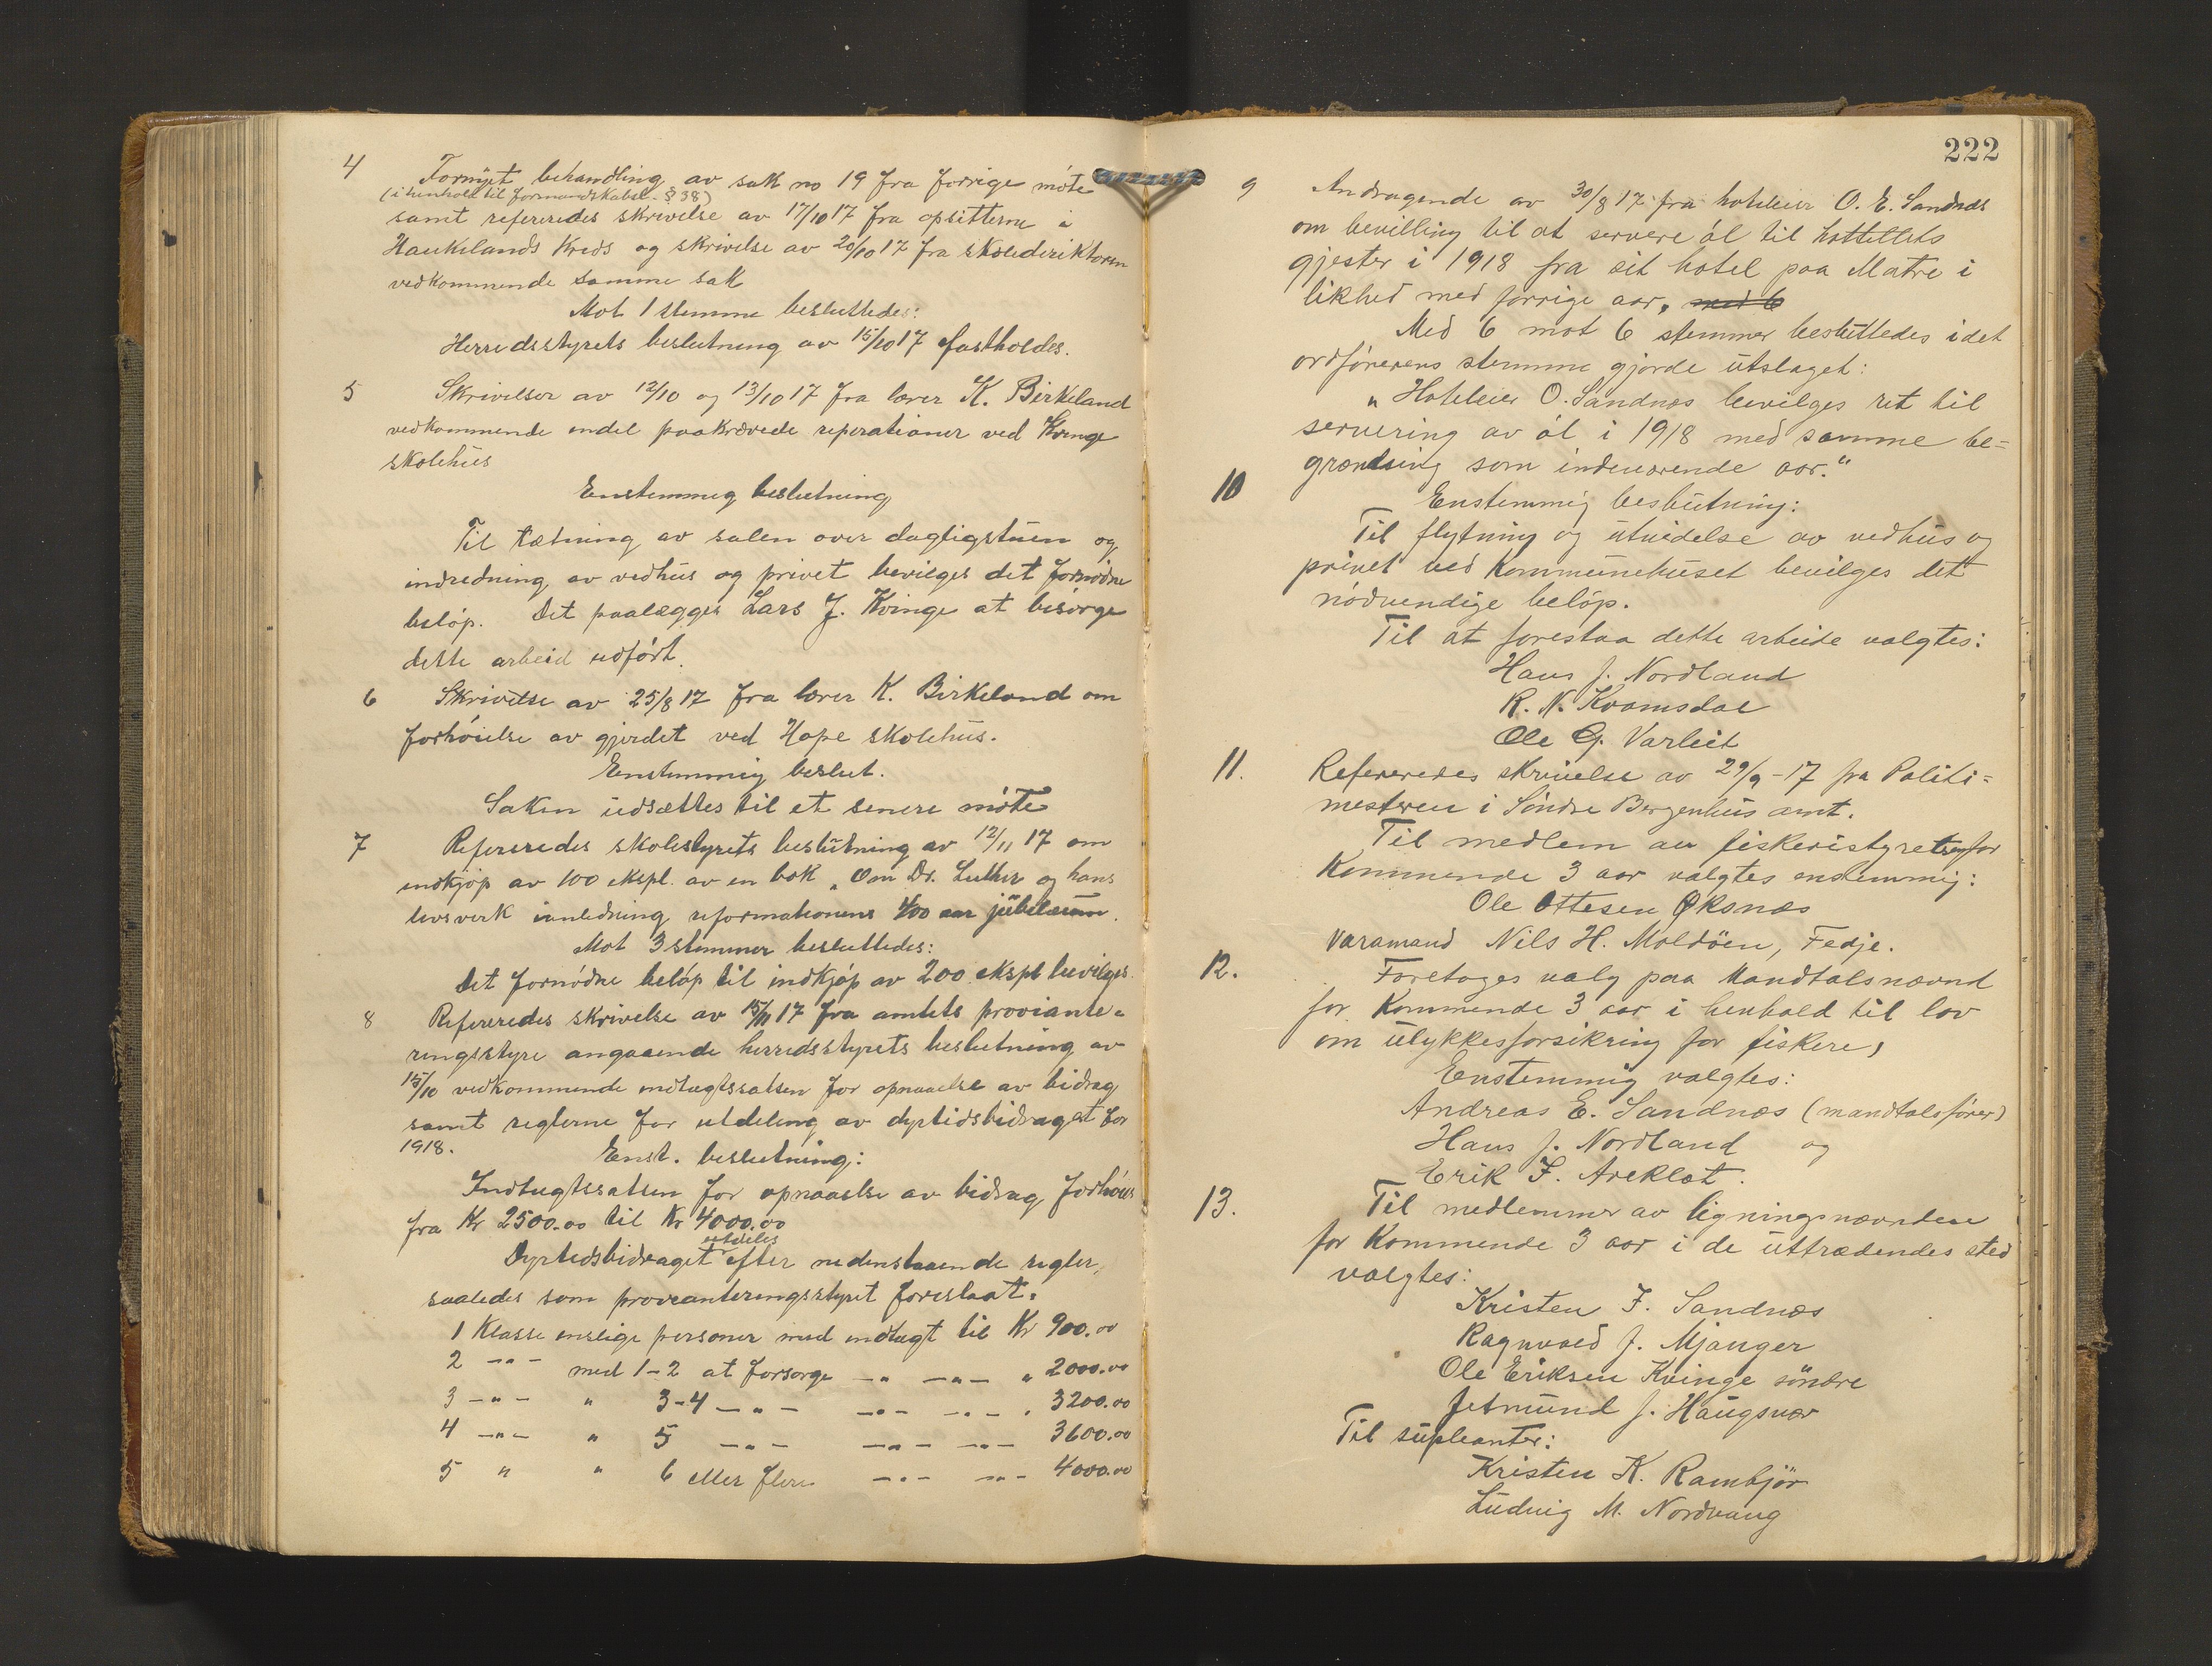 4 Fornyet behandling av sak no 19 fra forrige möte
(i henhold til formandskabsl. § 38)
samt refereredes skrivelse av 17/10 17 fra opsitterne i
Haukelands Kreds og skrivelse av 20/10 17 fra skolediriktören
vedkommende samme sak
Mot 1 stemme besluttedes:
Herredsstyrets beslutning av 15/10 17 fastholdes.
5 Skrivelser av 12/10 og 13/10 17 fra lærer K. Birkeland
vedkommende endel paakrævede reperationer ved Kvinge
skolehus
Enstemmig beslutning
Til tætning av salen over dagligstuen og
indredning av vedhus og privet bevilges det fornödne
belöp. Det paalægges Lars J. Kvinge at besörge
dette arbeid udfört.
6 Skrivelse av 25/8 17 fra lærer K. Birkeland om
forhöielse av gjerdet ved Hope skolehus.
Enstemmig beslut.
Saken udsættes til et senere möte
7 Refereredes skolestyrets beslutning av 12/11 17 om
indkjöp av 100 ekspl. av en bok „Om Dr. Luther og hans
livsverk i anledning reformationens 400 aar jubilæum.
Mot 3 stemmer besluttedes:
Det fornödne belöp til indkjöp av 200 ekspl bevilges.
8 Refereredes skrivelse av 15/11 17 fra amtets proviante-
ringsstyre angaaende herredsstyrets beslutning av
15/10 vedkommende indtægtssatsen for opnaaelse av bidrag
samt reglerne for utdeling av dyrtidsbidraget for
1918.
Enst. beslutning:
Indtægtssatsen for opnaaelse av bidrag forhöies
fra Kr 2500.00 til Kr 4000.00
utdeles
Dyrtidsbidraget efter nedenstaaende regler,
saaledes som provianteringsstyret foreslaat.
1 Klasse enslige personer med indtægt til Kr 900.00
2 —„— med 1-2 at forsørge —„ —„— „ 2000.00
3 —„— „ 3-4 —„— —„— —„— „ 3200.00
4 —„— „ 5 —„— —„— —„— 3600.00
5 „ „ 6 eller flere —„— —„— 4000.00
222
9 Andragende av 30/8 17 fra hoteleier O. E. Sandnæs
om bevilling til at servere öl til hottellets
gjester i 1918 fra sit hotel paa Matre i
likhed med forrige aar. med 6
Med 6 mot 6 stemmer besluttedes idet
ordförerens stemme gjorde utslaget:
„Hoteleier O. Sandnæs bevilges ret til
servering av öl i 1918 med samme be=
grændsing som indeværende aar.“
10 Enstemmig beslutning:
Til flytning og utvidelse av vedhus og
privet ved Kommunehuset bevilges det
nödvendige belöp.
Til at forestaa dette arbeide valgtes:
Hans J. Nordland
R. N. Kvamsdal
Ole G. Varleit
11. Refereredes skrivelse av 29/9-17 fra Politi=
mesteren i Söndre Bergenhus amt.
Til medlem av fiskeristyret for
Kommende 3 aar valgtes enstemmig:
Ole Ottesen Øksnæs
Varamand Nils H. Moldöen, Fedje.
12. Foretoges valg paa Mandtalsnævnd
for Kommende 3 aar i henhold til lov
om ulykkesforsikring for fiskere,
Enstemmig valgtes:
Andreas E. Sandnæs (mandtalsförer)
Hans J. Nordland og
Erik I. Areklot.
13. Til medlemmer av ligningsnævnden
for Kommende 3 aar i de uttrædendes sted
valgtes:
Kristen I. Sandnæs
Ragnvald J. Mjanger
Ole Eriksen Kvinge söndre
Jetmund J. Haugsvær
Til supleanter:
Kristen K. Rambjör
Ludvig M. Nordvang